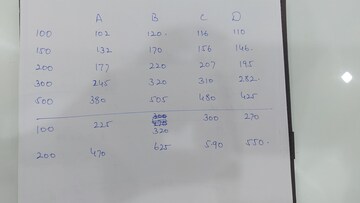 A B C D
100 102 120. 116 110
150 132 170 156 146.
200 177 220 207 195
300 245 320 310 282.
500 380 505 480 425
100 225 320 300 270
200 470 625 590 550.